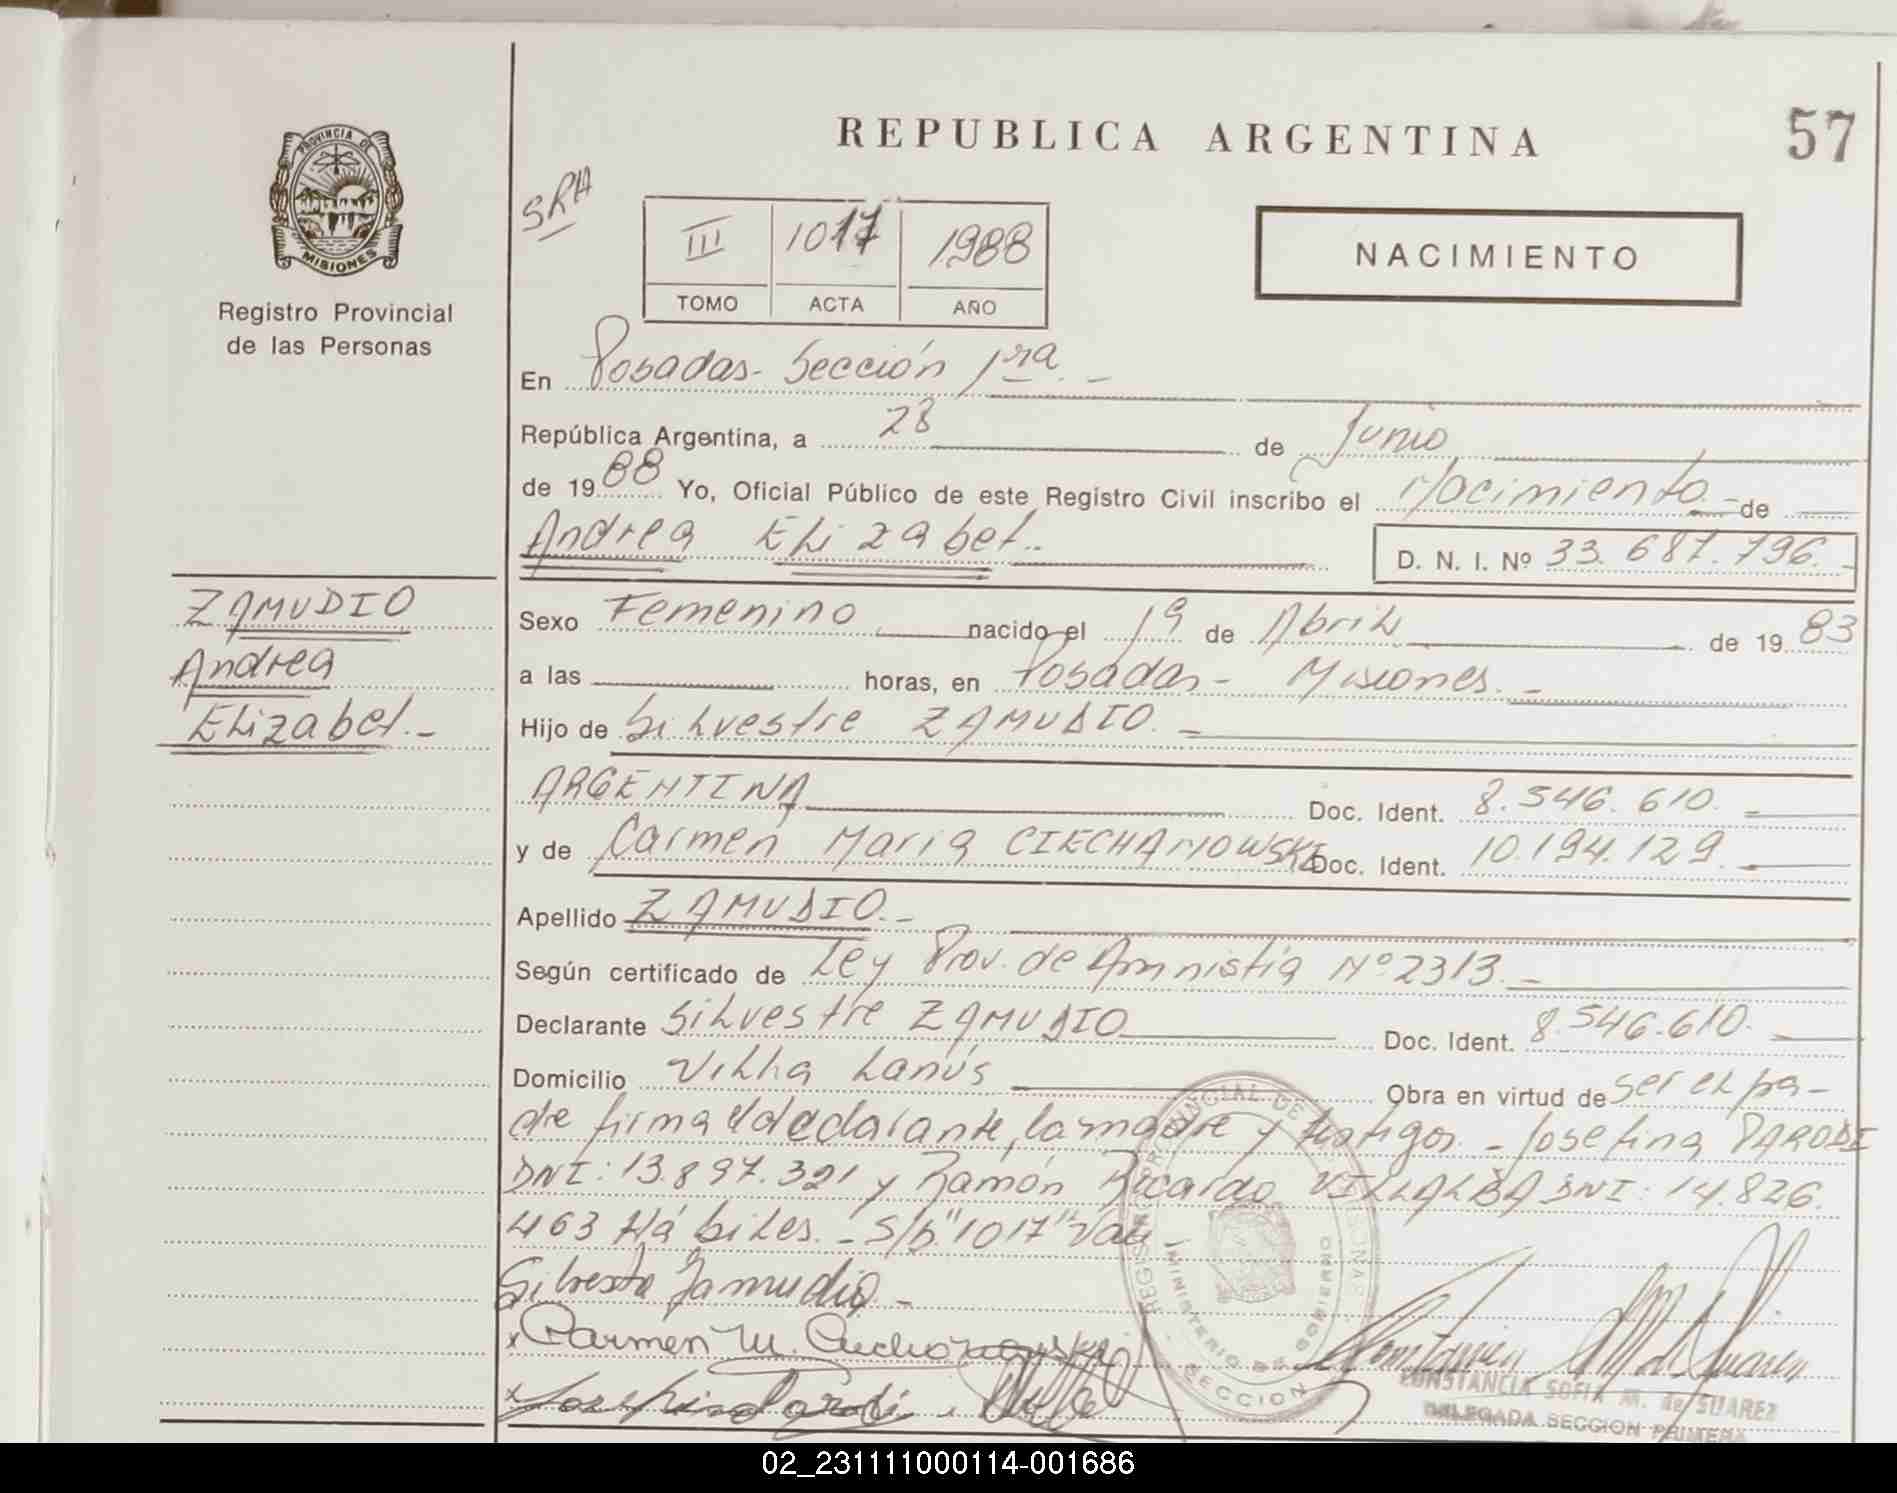 57
REPUBLICA ARGENTINA
PROVINCIA DE
MISIONES
Registro Provincial
de las Personas
SRA
III 1017 1988
TOMO ACTA AÑO
NACIMIENTO
En Posadas- Sección 1ra. -
República Argentina, a 28 de Junio
de 1988 Yo, Oficial Público de este Registro Civil inscribo el Nacimiento.- de
Andrea Elizabet.-
D. N. I. Nº 33.687.796.-
ZAMUDIO
Andrea
Elizabet.-
Sexo Femenino nacido el 19 de Abril de 1983
a las horas, en Posadas- Misiones.-
Hijo de Silvestre ZAMUDIO.-
ARGENTINA Doc. Ident. 8.546.610.-
y de Carmen Maria CIECHANOWSKI Doc. Ident. 10.194.129.-
Apellido ZAMUDIO.-
Según certificado de Ley Prov. de Amnistía Nº 2313.-
Declarante Silvestre ZAMUDIO Doc. Ident. 8.546.610.
Domicilio Villa Lanús Obra en virtud de ser el pa-
dre firma el declarante, la madre y testigos - Josefina PARODI
DNI: 13.897.321 y Ramón Ricardo VILLALBA DNI: 14.826.
463 Hábiles.- S/b "1017" Vale-
Silvestre Zamudio-
x Carmen M. Ciechanowski
x Josefina Parodi
REGISTRO PROVINCIAL DE LAS PERSONAS
MINISTERIO DE GOBIERNO
SECCION
CONSTANCIA SOFIA M. de SUAREZ
DELEGADA SECCION PRIMERA
02_231111000114-001686